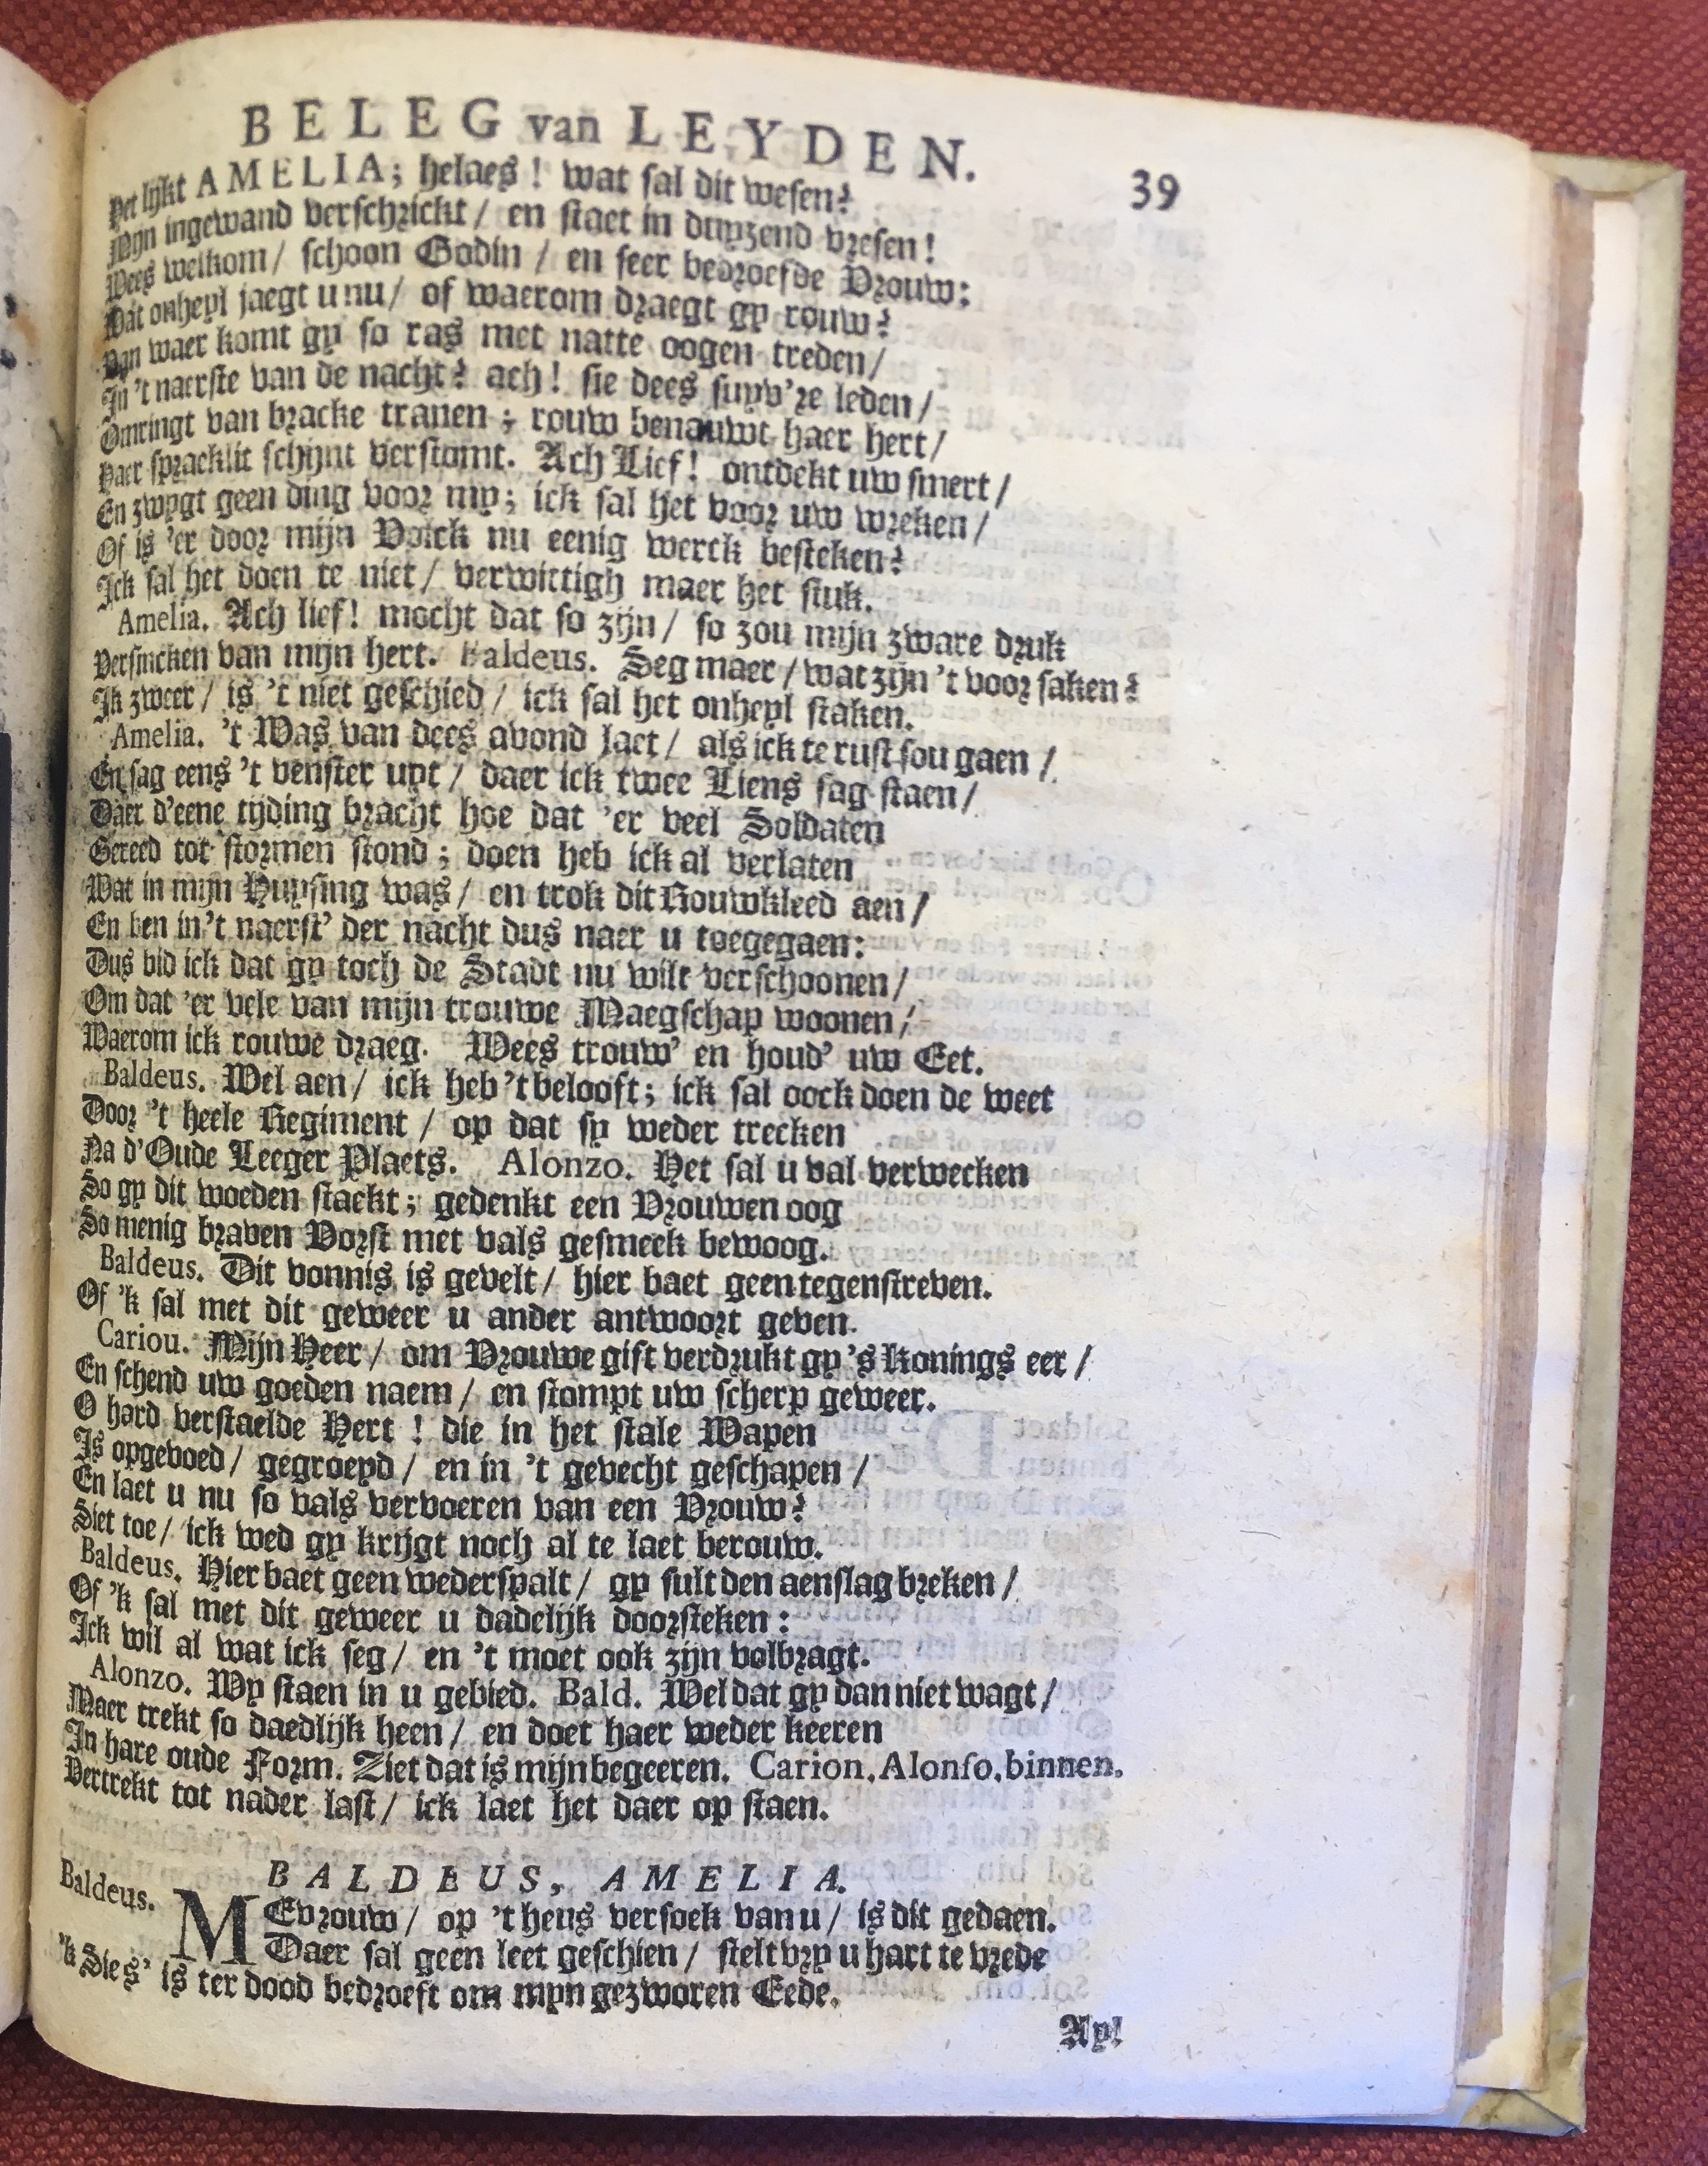 BELEG van LEYDEN. 39
Het lijkt AMELIA; helaes! wat sal dit wesen?
Mijn ingewand verschrickt/ en staet in duyzend vresen!
Wees welkom/ schoon Godin/ en seer bedroefde Vrouw:
Wat onheyl jaegt u nu/ of waerom draegt gy rouw?
Van waer komt gy so ras met natte oogen treden/
In 't naerste van de nacht? ach! sie dees suyv're leden/
Omringt van bracke tranen; rouw benauwt haer hert/
Haer spracklit schijnt verstomt. Ach Lief! ontdekt uw smert/
En zwygt geen ding voor my; ick sal het voor uw wreken/
Of is 'er door mijn Volck nu eenig werck besteken?
Ick sal het doen te niet/ verwittigh maer het stuk.
Amelia. Ach lief! mocht dat so zijn/ so zou mijn zware druk
Versincken van mijn hert. Baldeus. Seg maer/ wat zijn 't voor saken?
Ik zweer/ is 't niet geschied/ ick sal het onheyl staken.
Amelia. 't Was van dees avond laet/ als ick te rust sou gaen/
En sag eens 't venster uyt/ daer ick twee Liens sag staen/
Daer d'eene tijding bracht hoe dat 'er veel Soldaten
Gereed tot stormen stond; doen heb ick al verlaten
Wat in mijn Huysing was/ en trok dit Rouwkleed aen/
En ben in 't naerst' der nacht dus naer u toegegaen:
Dus bid ick dat gy toch de Stadt nu wilt verschoonen/
Om dat 'er vele van mijn trouwe Maegschap woonen/
Waerom ick rouwe draeg. Wees trouw' en houd' uw Eet.
Baldeus. Wel aen/ ick heb 't belooft; ick sal oock doen de weet
Door 't heele Regiment/ op dat sy weder trecken
Na d'Oude Leeger Plaets. Alonzo. Het sal u val verwecken
So gy dit woeden staekt; gedenkt een Vrouwen oog
So menig braven Vorst met vals gesmeek bewoog.
Baldeus. Dit vonnis is gevelt/ hier baet geen tegenstreven.
Of 'k sal met dit geweer u ander antwoort geven.
Cariou. Mijn Heer/ om Vrouwe gift verdrukt gy 's Konings eer/
En schend uw goeden naem/ en stompt uw scherp geweer.
O hard verstaelde Hert! die in het stale Wapen
Is opgevoed/ gegroeyd/ en in 't gevecht geschapen/
En laet u nu so vals vervoeren van een Vrouw?
Siet toe/ ick wed gy krijgt noch al te laet berouw.
Baldeus. Hier baet geen wederspalt/ gy sult den aenslag breken/
Of 'k sal met dit geweer u dadelijk doorsteken:
Ick wil al wat ick seg/ en 't moet ook zijn volbragt.
Alonzo. Wy staen in u gebied. Bald. Wel dat gy dan niet wagt/
Maer trekt so daedlijk heen/ en doet haer weder keeren
In hare oude Form. Ziet dat is mijn begeeren. Carion, Alonso, binnen.
Vertrekt tot nader last/ ick laet het daer op staen.
BALDEUS, AMELIA.
Baldeus. MEvrouw/ op 't heus versoek van u/ is dit gedaen.
Daer sal geen leet geschien/ stelt vry u hart te vrede
'k Sie s' is ter dood bedroeft om myn gezworen Eede.
Ay!